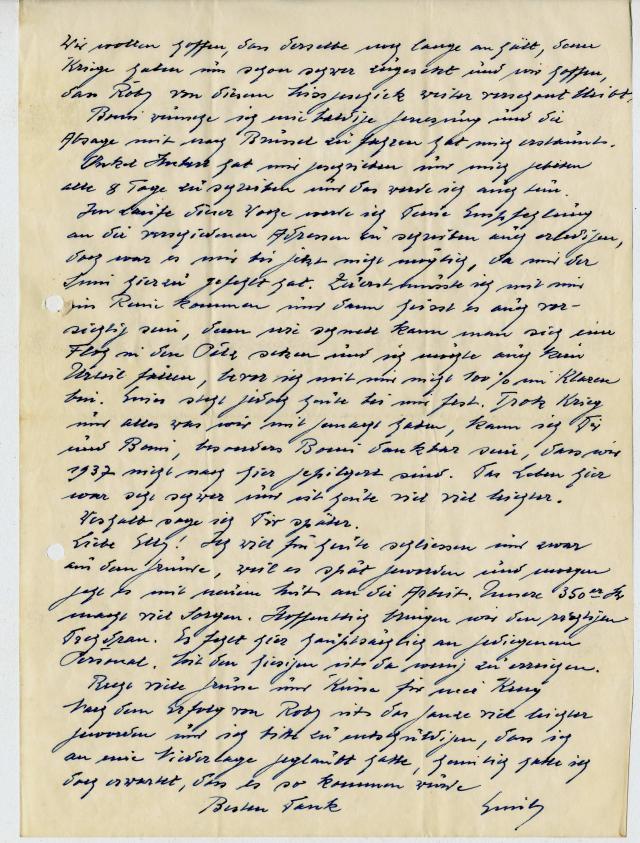 Wir wollen hoffen, dass derselbe noch lange anhält, denn
Kriege haben uns schon schwer zugesetzt und wir hoffen,
dass Roby von diesem Missgeschick weiter verschont bleibt.
Bomi wünsche ich eine baldige Genesung und die
Absage mit nach Brüssel zu fahren hat mich erstaunt.
Onkel Hubert hat mir geschrieben und mich gebeten
alle 8 Tage zu schreiben und das werde ich auch tun.
Im Laufe dieser Woche werde ich Deine Empfehlung
an die verschiedenen Adressen zu schreiben auch erledigen,
doch war es mir bis jetzt nicht möglich, da mir der
hierzu gefehlt hat. Zuerst müsste ich mit mir
ins Reine kommen und dann heisst es auch vor-
sichtig sein, denn wie schnell kann man sich eine
Floh in den Pelz setzen und ich möchte auch kein
Urteil fällen, bevor ich mit mir nicht 100% im Klaren
bin. Eines steht jedoch heute bei mir fest. Trotz Krieg
und alles was wir mit gemacht haben, kann ich Dir
und Bomi, besonders Bomi dankbar sein, dass wir
1937 nicht nach hier gepilgert sind. Das Leben hier
war sehr schwer und ist heute viel viel leichter.
Deshalb sage ich Dir später.
Liebe Elly! Ich will für heute schliessen und zwar
aus dem Grunde, weil es spät geworden und morgen
geht es mit neuem Mut an die Arbeit. Unsere 350er
macht viel Sorgen. Hoffentlich bringen wir den richtigen
Es fehlt hier hauptsächlich an gediegenem
Personal. Mit den hiesigen ist da wenig zu erreichen.
Recht viele Grüsse und Küsse für
Nach dem Erfolg von Roby ist das Ganze viel leichter
geworden und ich bitte zu entschuldigen, dass ich
an eine Niederlage geglaubt hatte, hatte ich
doch erwartet, dass es so kommen würde
Besten Dank Emil